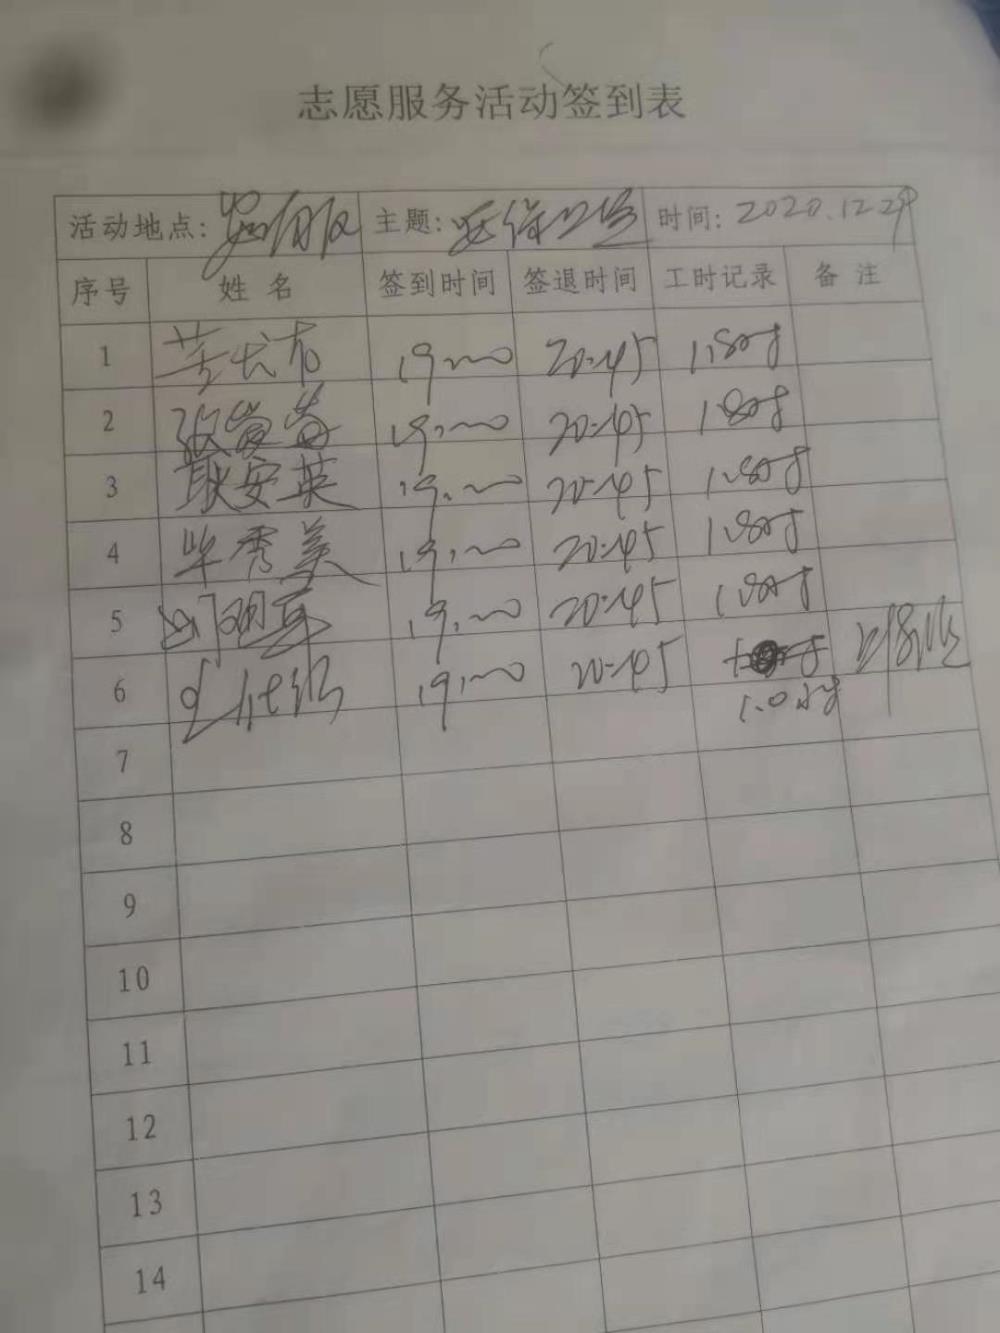 志愿服务活动签到表
活动地点: 主题: 环保卫生 时间: 2020.12.29
序号 姓名 签到时间 签退时间 工时记录 备注
1 19:00 20:45 1.8小时
2 19:00 20:45 1.8小时
3 耿安英 19:00 20:45 1.8小时
4 毕秀美 19:00 20:45 1.8小时
5 19:00 20:45 1.8小时
6 19:00 20:45
1.0小时
7
8
9
10
11
12
13
14